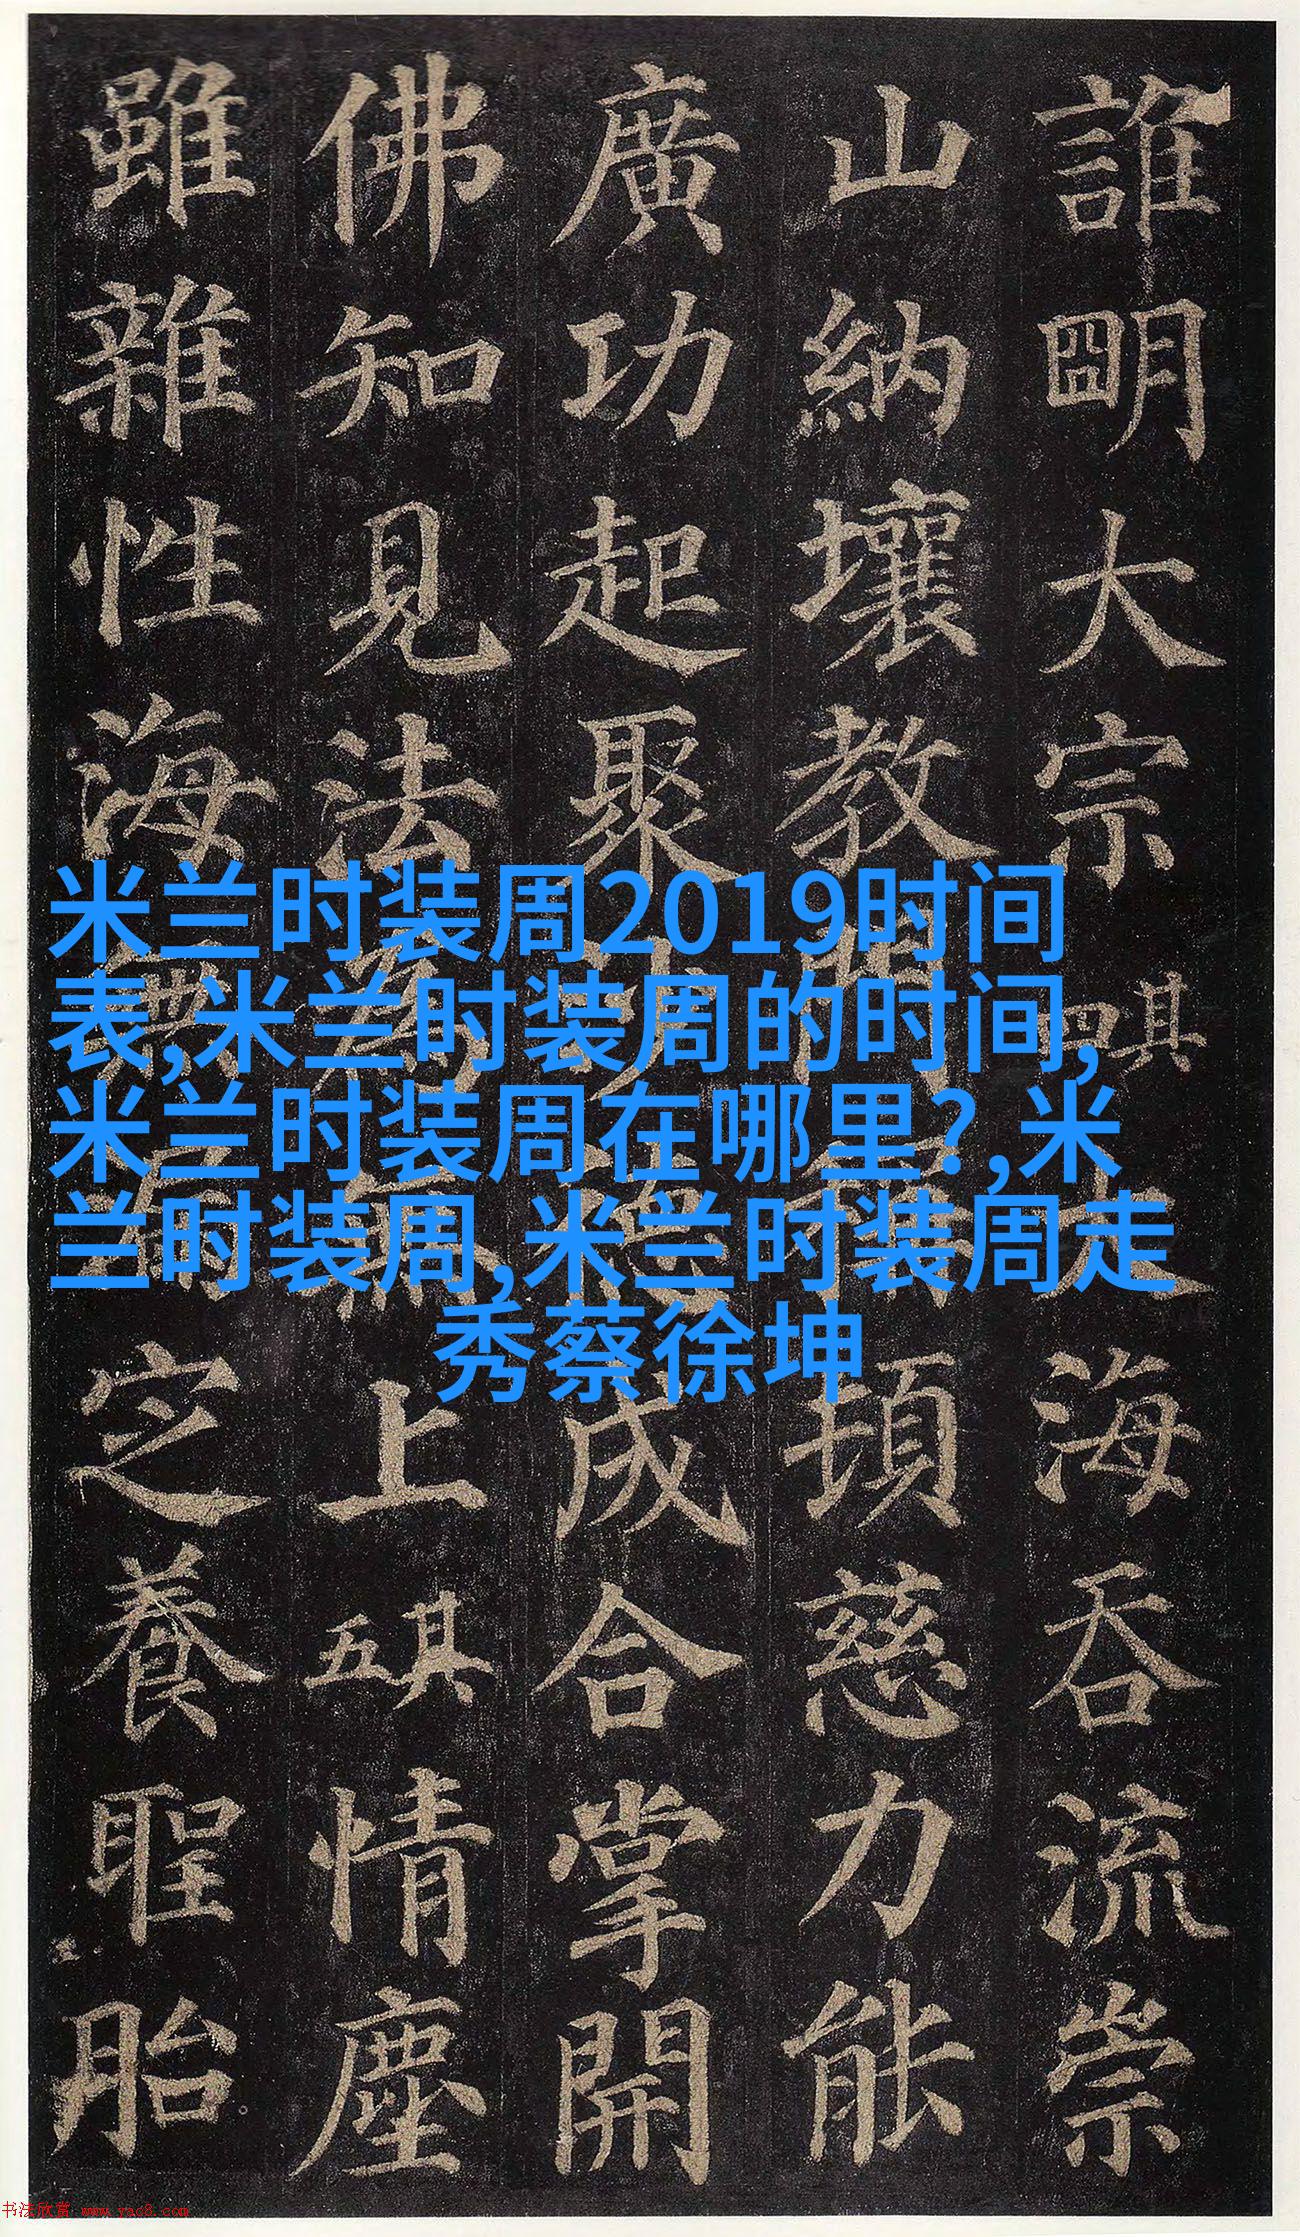 誰明大宗其四大海吞流崇
山納壤教門稱頓慈力能
廣功起聚沙德成合掌開
佛知見法為無上其五情塵
雖雜性海無漏定養聖胎
米兰时装周2019时间
表,米兰时装周的时间,
米兰时装周在哪里? ,米
兰时装周,米兰时装周走
秀蔡徐坤
书法欣赏 www.yac8.com